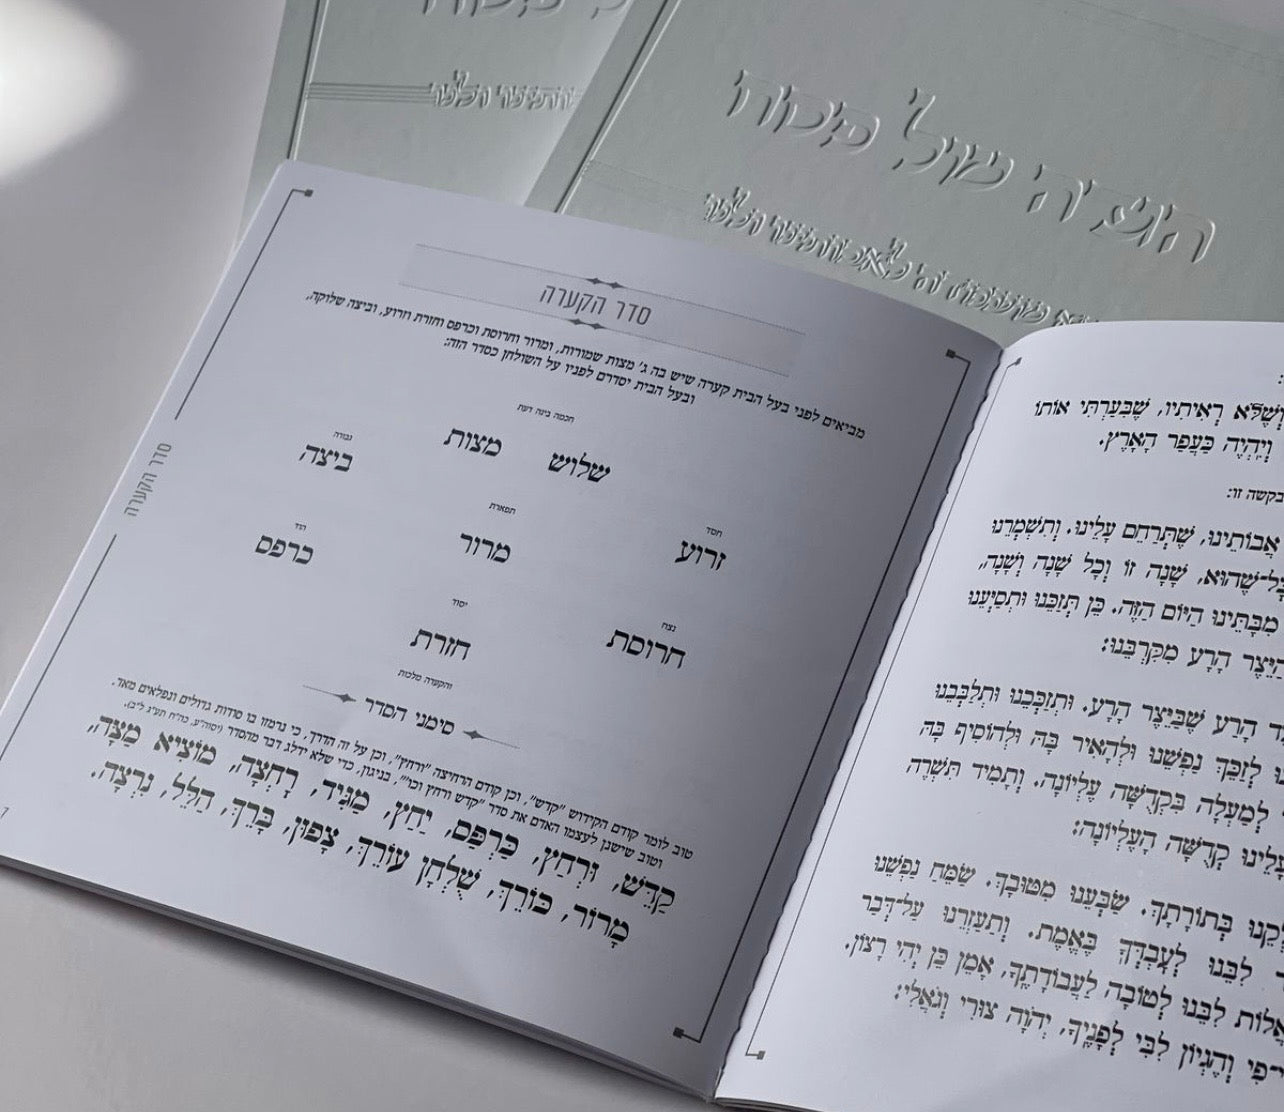 הגדה של פסח
סדר הקערה
מביאים לפני בעל הבית קערה שיש בה ג' מצות שמורות, ומרור וחרוסת וכרפס וחזרת וזרוע, וביצה שלוקה,
ובעל הבית יסדרם לפניו על השולחן כסדר הזה:
חכמה בינה דעת
שלוש מצות
גבורה
ביצה
חסד
זרוע
תפארת
מרור
הוד
כרפס
נצח
חרוסת
יסוד
חזרת
והקערה מלכות
סימני הסדר
טוב לומר קודם הקידוש "קדש", וכן קודם הרחיצה "ורחץ", וכן על זה הדרך, כי נרמזו בו סודות גדולים ונפלאים מאד.
וטוב שישנן לעצמו האדם את סדר "קדש ורחץ וכו'", בניגון, כדי שלא ידלג דבר מהסדר
קַדֵּשׁ, וּרְחַץ, כַּרְפַּס, יַחַץ, מַגִּיד, רָחְצָה, מוֹצִיא מַצָּה,
מָרוֹר, כּוֹרֵךְ, שֻׁלְחָן עוֹרֵךְ, צָפוּן, בָּרֵךְ, הַלֵּל, נִרְצָה.
סדר הקערה
7
וְשֶׁלֹּא רְאִיתִיו, שֶׁבִּעַרְתִּי אוֹתוֹ
וְיִהְיֶה כַּעֲפַר הָאָרֶץ.
בקשה זו:
אֲבוֹתֵינוּ, שֶׁתְּרַחֵם עָלֵינוּ. וְתִשְׁמְרֵנוּ
כָּל־שֶׁהוּא, שָׁנָה זוֹ וְכָל שָׁנָה וְשָׁנָה,
מִבָּתֵּינוּ הַיּוֹם הַזֶּה. כֵּן תְּזַכֵּנוּ וּתְסַיְּעֵנוּ
הַיֵּצֶר הָרָע מִקִּרְבֵּנוּ:
הָרַע שֶׁבַּיֵּצֶר הָרָע. וּתְזַכְּכֵנוּ וּתְלַבְּבֵנוּ
לְזַכֵּךְ נַפְשֵׁנוּ וּלְהָאִיר בָּהּ וּלְהוֹסִיף בָּהּ
לְמַעְלָה בִּקְדֻשָּׁה עֶלְיוֹנָה. וְתָמִיד תַּשְׁרֶה
עָלֵינוּ קְדֻשָּׁה הָעֶלְיוֹנָה:
בְּתוֹרָתֶךָ. שַׂבְּעֵנוּ מִטּוּבָךְ. שַׂמֵּחַ נַפְשֵׁנוּ
לִבֵּנוּ לְעָבְדְּךָ בֶּאֱמֶת. וְתַעַזְרֵנוּ עַל־דְּבַר
לִבֵּנוּ לְטוֹבָה לַעֲבוֹדָתֶךָ, אָמֵן כֵּן יְהִי רָצוֹן.
פִּי וְהֶגְיוֹן לִבִּי לְפָנֶיךָ, יְהֹוָה צוּרִי וְגֹאֲלִי: